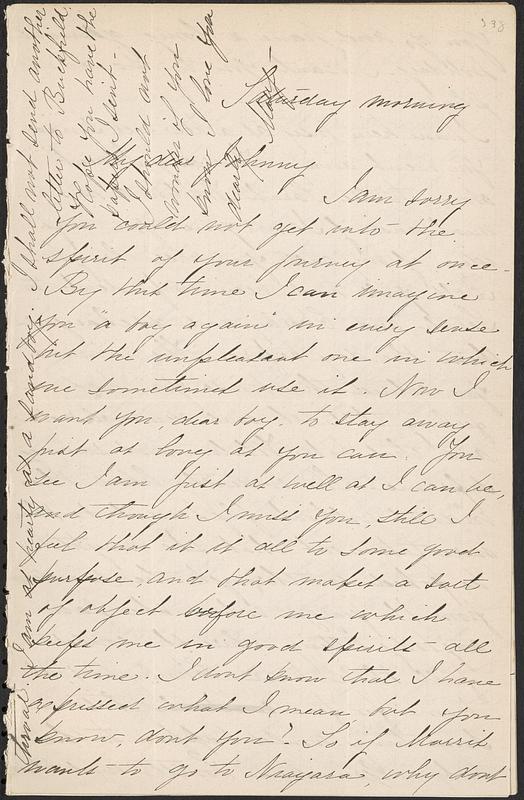 338
Saturday morning
My dear Johnny
I am sorry
you could not get into the
spirit of your journey at once.
By this time I can imagine
you "a boy again" in every sense
but the unpleasant one in which
we sometimes use it. Now I
want you, dear boy, to stay away
just as long as you can. You
see I am just as well as I can be,
and though I miss you, still I
feel that it is all to some good
purpose, and that makes a sort
of object before me which
keeps me in good spirits all
the time. I dont know that I have
expressed what I mean, but you
know, dont you? So if Morris
wants to go to Niagara, why dont
I am as hearty as a sand boy. I shall not send another
letter to Buckfield.
Hope you have the
papers I sent.
Should ant
wonder if you
knew I love you
dearly